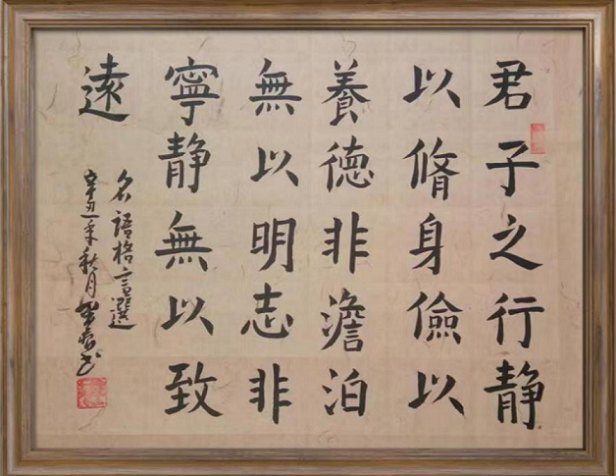 君子之行静
以脩身儉以
養德非澹泊
無以明志非
寧静無以致
遠
名語格言選
辛丑年秋月